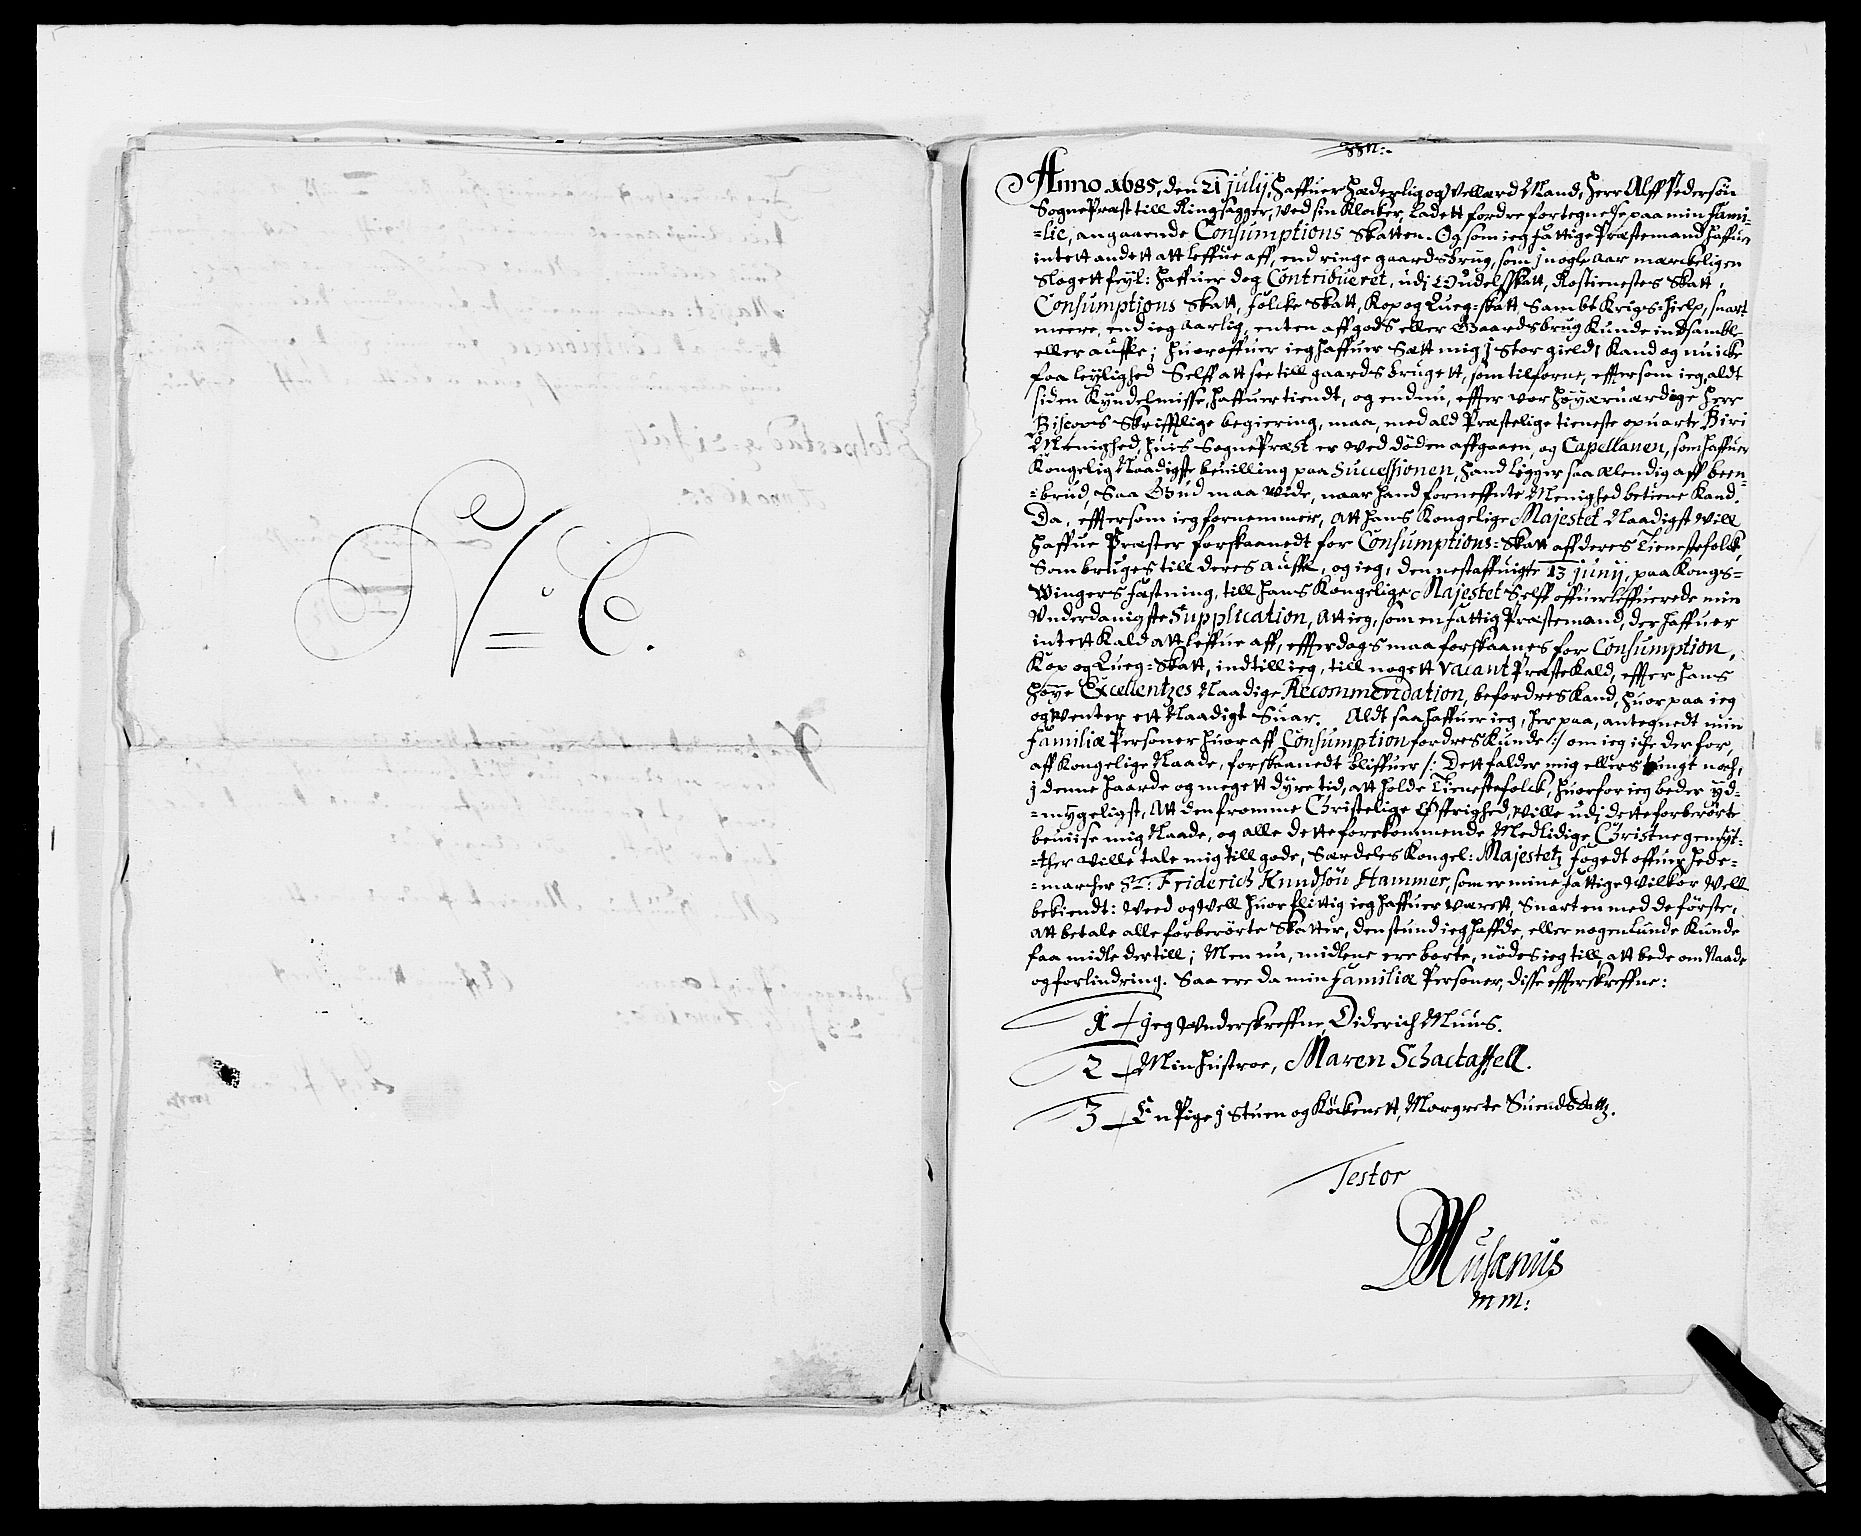 N: C.
Anno 1685, den 21 julij, haffuer hæderlig og Vellærd Mand, Herr Alff Pedersøn
SognePræst till Ringsagger, ved sin Klocker, Ladett fordre fortegnelse paa min Fami-
-lie, angaaende Consumptions Skatten. Og som ieg fattige Præstemand haffuer
intett andett att leffue aff, end ringe gaardsbrug, som j nogle aar mærckeligen
Slagett feyl: haffuer dog Contribueret, udj Skatt, Rostienestes Skatt,
Consumptions Skatt, folcke Skatt, Kop og Qveg-skatt Sambt Krigs-hielp, snart
meere, end ieg aarlig, enten aff gods eller Gaardsbrug Kunde indsamble
eller auffle; huoroffuer ieg haffuer Sætt mig j Stor gield, Kand og nu icke
faa leylighed Selff att see till gaardsbrugett, som tilforne, effter som ieg, aldt
siden Kyndelmisse, haffuer tiendt, og endnu, effter vor höyærværdige Herr
Biscops Skrifftlige begiering, maa, med ald Præstelige tieneste opuarte Biri
Menighed, huis SognePræst er ved döden affgaaen, og Capellanen, som haffuer
Kongelig Naadigste beuilling paa Successionen, hand ligger saa ælendig aff been-
-brud, Saa Gud maa vide, naar hand forneffnte Menighed betiene Kand.
Da, effter som ieg fornemmer, att hans Kongelige Majestet Naadigst vill
haffue Præster forskaanedt for Consumptions-Skatt aff deres Tienestefolck,
Som bruges till deres auffle, og ieg, den nestaffuigte 13 junij, paa Kongs-
Wingers fæstning, till hans Kongelige Majestet Selff offuerleffuerede min
Vnderdanigste Supplication, att ieg, som en fattig Præstemand, der haffuer
intett Kald att leffue aff, effterdags maa forskaanes for Consumption,
Kop og Qveg-Skatt, indtill ieg, till nogett vacant Præstekald, effter hans
höye Excellentzes Naadige Recommendation, befordres Kand, huor paa ieg
og venter ett Naadigt Suar. Aldt saa haffuer ieg, her paa, antegnedt min
Familiæ Personer huor aff Consumption fordres Kunde :/ om ieg icke der for,
aff Kongelige Naade, forskaanedt bliffuer /: Dett falder mig ellers tungt noch,
j denne haarde og megett dyre tid, att holde Tienestefolck, huorfor ieg beder yd-
-mygeligst, Att den fromme Christelige Øffrighed, ville udj dette forberörte
beuiise mig Naade, og alle dette forekommende Medlidige Christne gemüt-
-ther ville tale mig till gode, Særdeles Kongel: Majestetz fogedt offuer Hede-
-marcher Sr: Friderich Knudsön Hammer, som er mine fattige Vilkor Vell
bekiendt: Veed og Vell huor flittig ieg haffuer værett, Snart en med de förste,
att betale alle forberörte Skatter, den stund ieg haffde, eller nogenlunde Kunde
faa midle dertill; Men nu, midlene ere borte, nödes ieg till att bede om Naade
og forlindring. Saa ere da min Familiæ Personer, disse effterskreffne:
1 Jeg Vnderskreffne, Diderich Muus.
2 Min hustroe, Maren Schactaffell.
3 En Pige j Stuen og Köckenett, Margrete Suendsdattr.
Testor
DMusænius
mm: